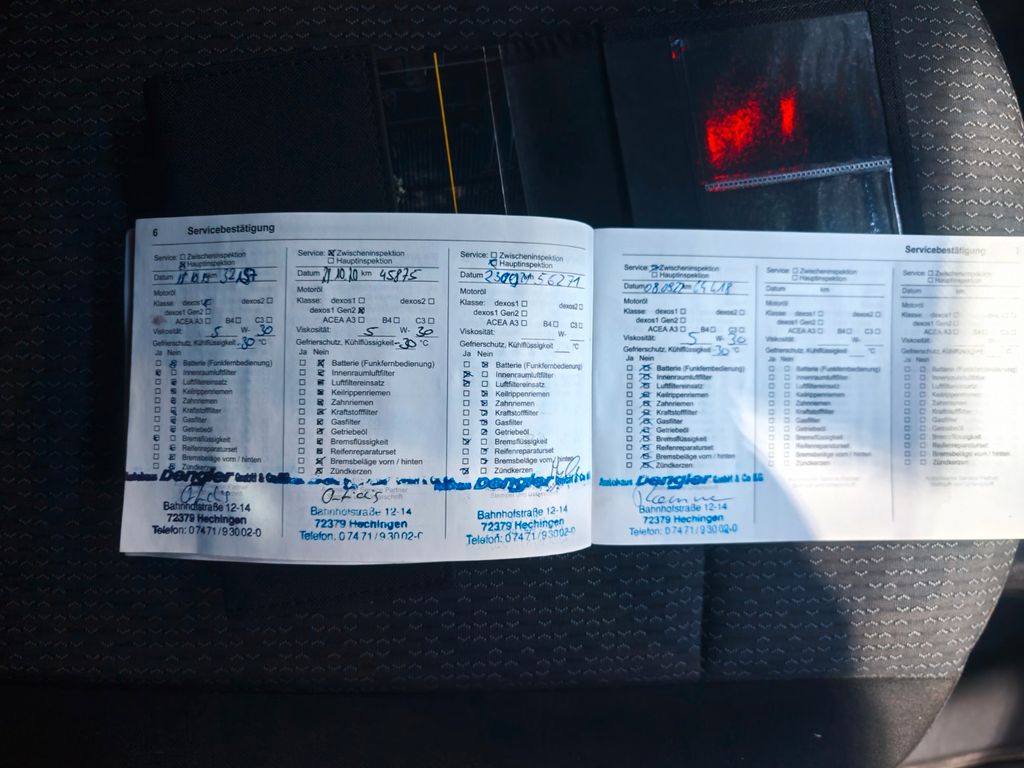 6 Servicebestätigung
Service: Zwischeninspektion
Hauptinspektion
Datum km 32157
Motoröl
Klasse: dexos1 dexos2
dexos1 Gen2
ACEA A3 B4 C3
Viskosität: 5 W- 30
Gefrierschutz, Kühlflüssigkeit -30 °C
Ja Nein
Batterie (Funkfernbedienung)
Innenraumluftfilter
Luftfiltereinsatz
Keilrippenriemen
Zahnriemen
Kraftstofffilter
Gasfilter
Getriebeöl
Bremsflüssigkeit
Reifenreparaturset
Bremsbeläge vorn / hinten
Zündkerzen
Autohaus Dengler GmbH & Co
Bahnhofstraße 12-14
72379 Hechingen
Telefon: 07471/93002-0
Service: Zwischeninspektion
Hauptinspektion
Datum 21.10.20 km 45875
Motoröl
Klasse: dexos1 dexos2
dexos1 Gen2
ACEA A3 B4 C3
Viskosität: 5 W- 30
Gefrierschutz, Kühlflüssigkeit -30 °C
Ja Nein
Batterie (Funkfernbedienung)
Innenraumluftfilter
Luftfiltereinsatz
Keilrippenriemen
Zahnriemen
Kraftstofffilter
Gasfilter
Getriebeöl
Bremsflüssigkeit
Reifenreparaturset
Bremsbeläge vorn / hinten
Zündkerzen
Bahnhofstraße 12-14
72379 Hechingen
Telefon: 07471/93002-0
Service: Zwischeninspektion
Hauptinspektion
Datum 56271
Motoröl
Klasse: dexos1 dexos2
dexos1 Gen2
ACEA A3 B4 C3
Viskosität: W-
Gefrierschutz, Kühlflüssigkeit °C
Ja Nein
Batterie (Funkfernbedienung)
Innenraumluftfilter
Luftfiltereinsatz
Keilrippenriemen
Zahnriemen
Kraftstofffilter
Gasfilter
Getriebeöl
Bremsflüssigkeit
Reifenreparaturset
Bremsbeläge vorn / hinten
Zündkerzen
Autohaus Dengler GmbH & Co
Bahnhofstraße 12-14
72379 Hechingen
Telefon: 07471/93002-0
Servicebestätigung
Service: Zwischeninspektion
Hauptinspektion
Datum 08.09.22 64418
Motoröl
Klasse: dexos1 dexos2
dexos1 Gen2
ACEA A3 B4 C3
Viskosität: 5 W- 30
Gefrierschutz, Kühlflüssigkeit -30 °C
Ja Nein
Batterie (Funkfernbedienung)
Innenraumluftfilter
Luftfiltereinsatz
Keilrippenriemen
Zahnriemen
Kraftstofffilter
Gasfilter
Getriebeöl
Bremsflüssigkeit
Reifenreparaturset
Bremsbeläge vorn / hinten
Zündkerzen
Autohaus Dengler GmbH & Co KG
Bahnhofstraße 12-14
72379 Hechingen
Telefon: 07471/93002-0
Service: Zwischeninspektion
Hauptinspektion
Datum km
Motoröl
Klasse: dexos1 dexos2
dexos1 Gen2
ACEA A3 B4 C3
Viskosität: W-
Gefrierschutz, Kühlflüssigkeit °C
Ja Nein
Batterie (Funkfernbedienung)
Innenraumluftfilter
Luftfiltereinsatz
Keilrippenriemen
Zahnriemen
Kraftstofffilter
Gasfilter
Getriebeöl
Bremsflüssigkeit
Reifenreparaturset
Bremsbeläge vorn / hinten
Zündkerzen
Service: Zwischeninspektion
Hauptinspektion
Datum km
Motoröl
Klasse: dexos1
dexos1 Gen2
ACEA A3 B4
Viskosität:
Gefrierschutz, Kühlflüssigkeit
Ja Nein
Batterie (Funkfernbedienung)
Innenraumluftfilter
Luftfiltereinsatz
Keilrippenriemen
Zahnriemen
Kraftstofffilter
Gasfilter
Getriebeöl
Bremsflüssigkeit
Reifenreparaturset
Bremsbeläge vorn / hinten
Zündkerzen